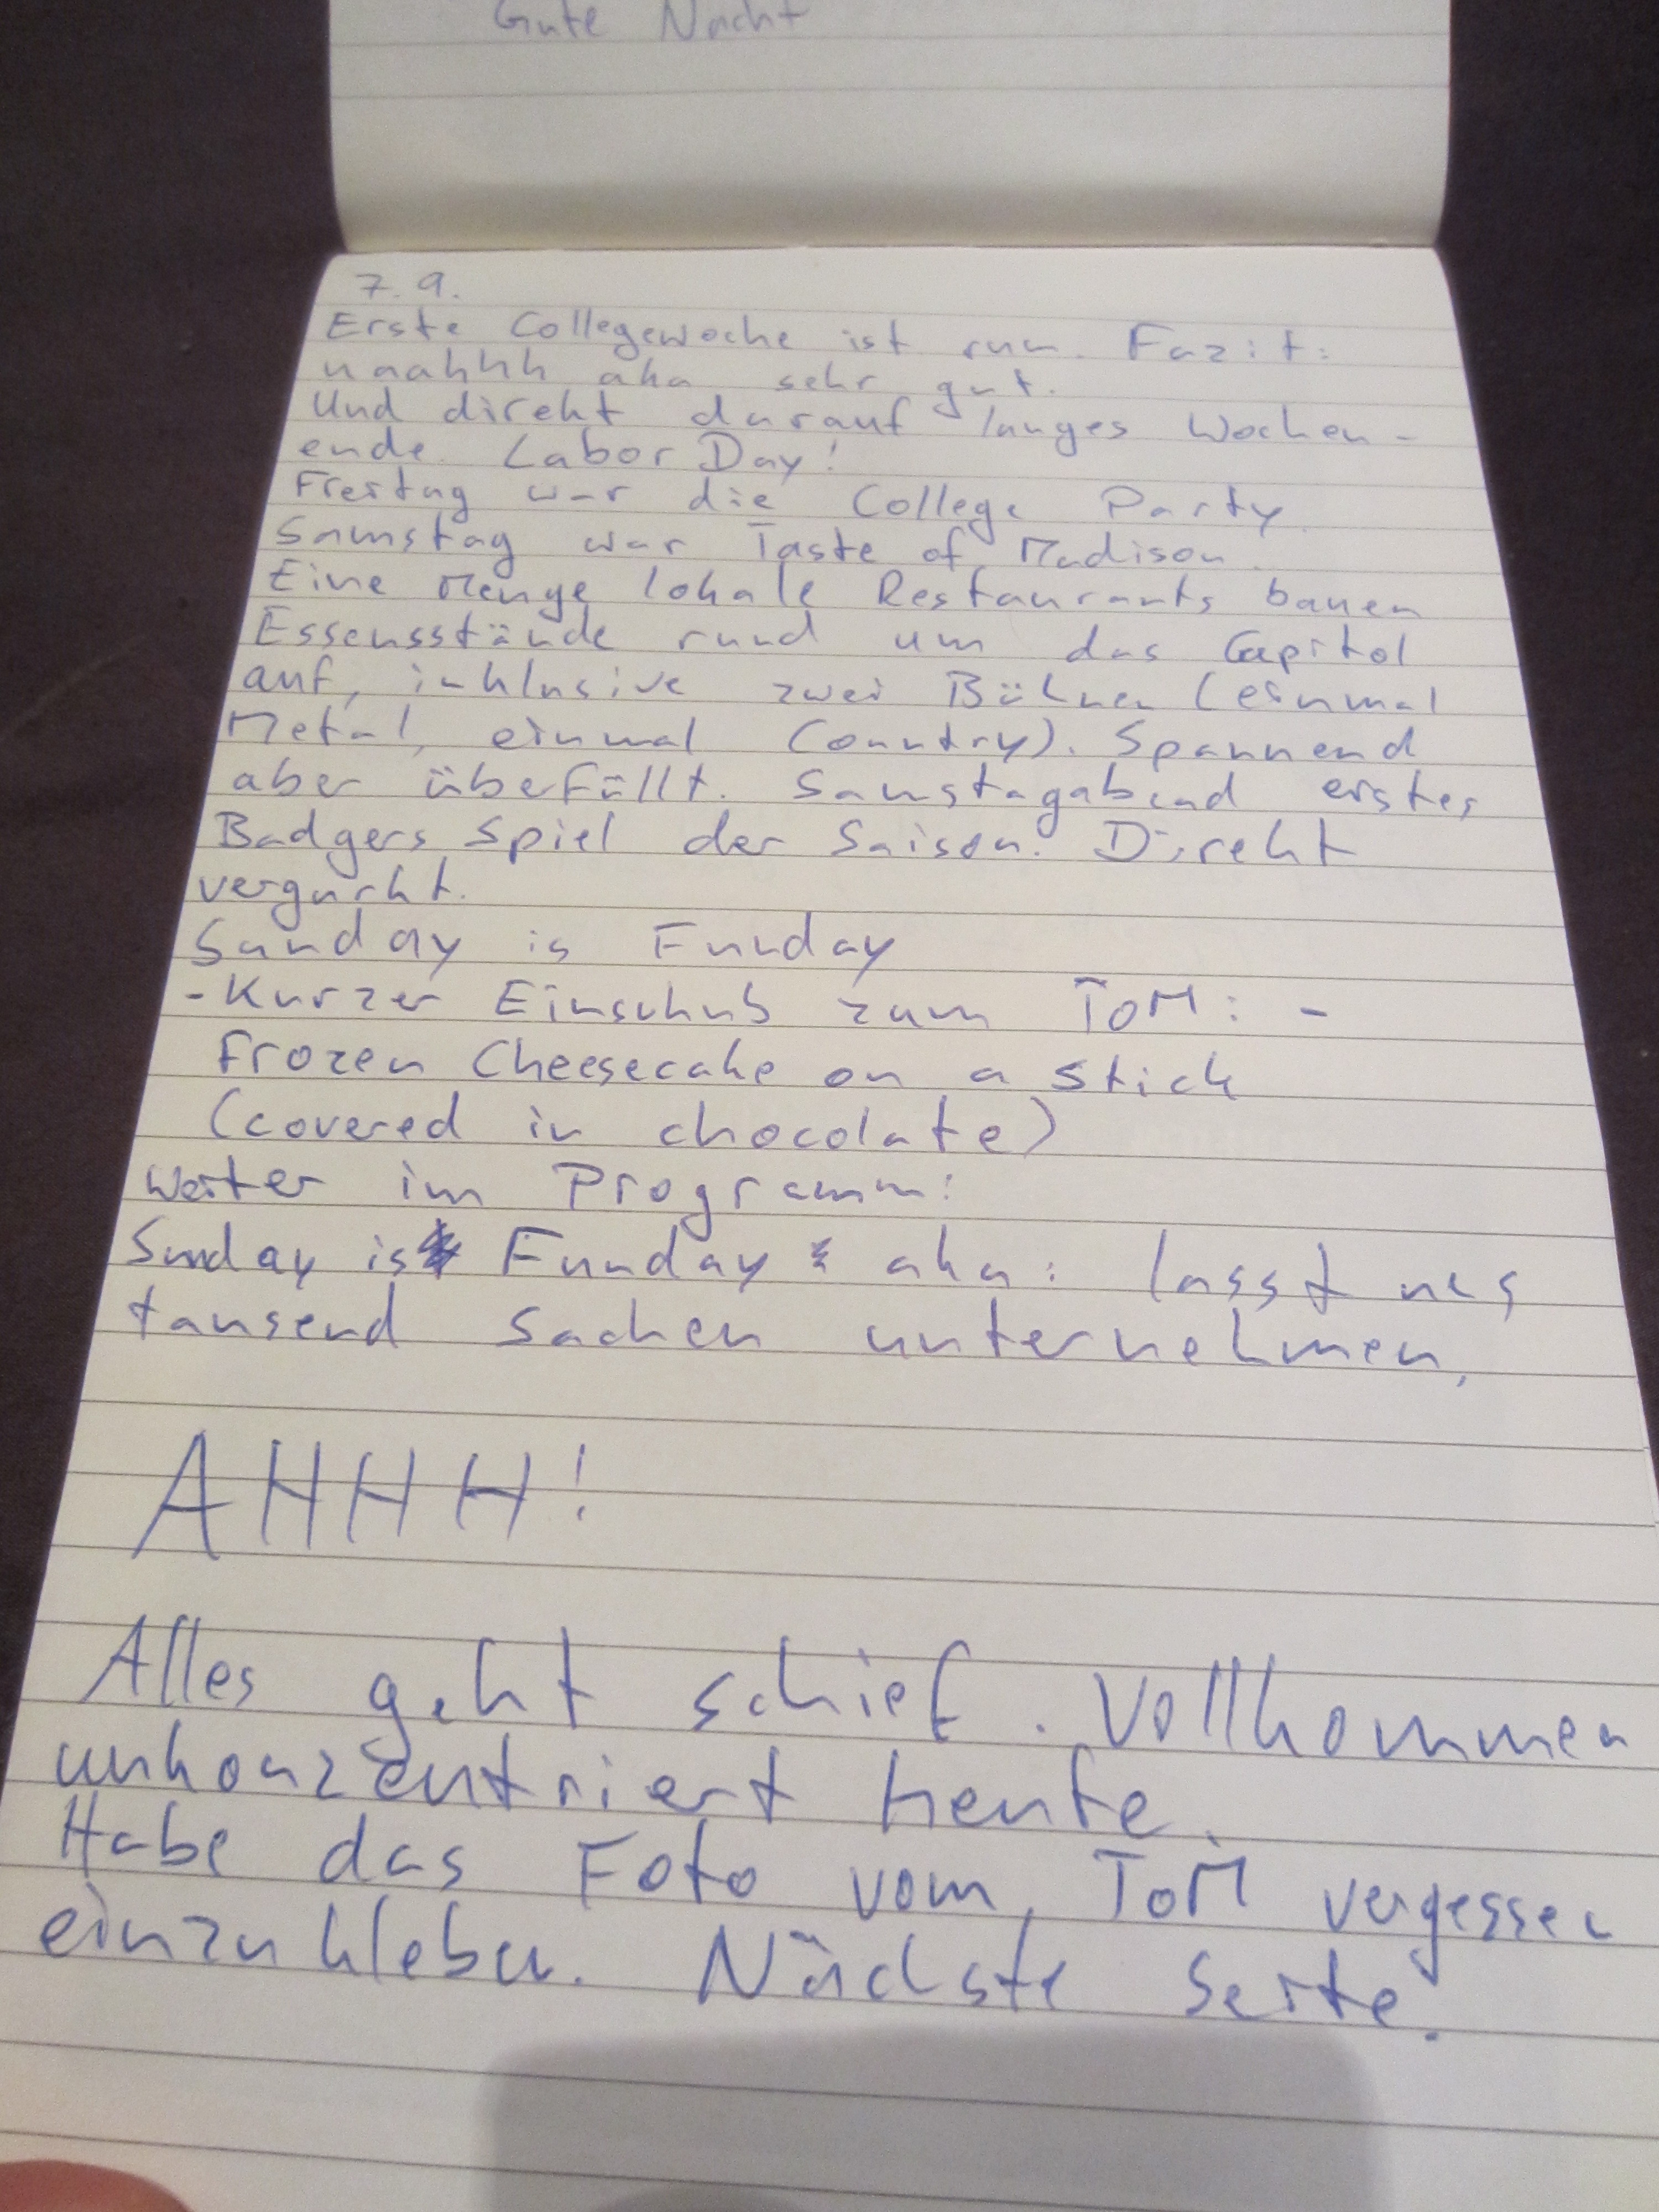 Gute Nacht
7.9.
Erste Collegewoche ist rum. Fazit:
naahhh aka sehr gut.
Und direkt darauf langes Wochen-
ende. Labor Day!
Freitag war die College Party.
Samstag war Taste of Madison.
Eine Menge lokale Restaurants bauen
Essensstände rund um das Capitol
auf, inklusive zwei Bühnen (einmal
Metal, einmal Country). Spannend
aber überfüllt. Samstagabend erstes
Badgers Spiel der Saison. Direkt
vergurkt.
Sunday is Funday
- Kurzer Einschub zum ToM: -
Frozen Cheesecake on a stick
(covered in chocolate)
Weiter im Programm:
Sunday is Funday aka: lasst uns
tausend Sachen unternehmen,
AHHH!
Alles geht schief. Vollkommen
unkonzentriert heute.
Habe das Foto vom ToM vergessen
einzukleben. Nächste Seite!